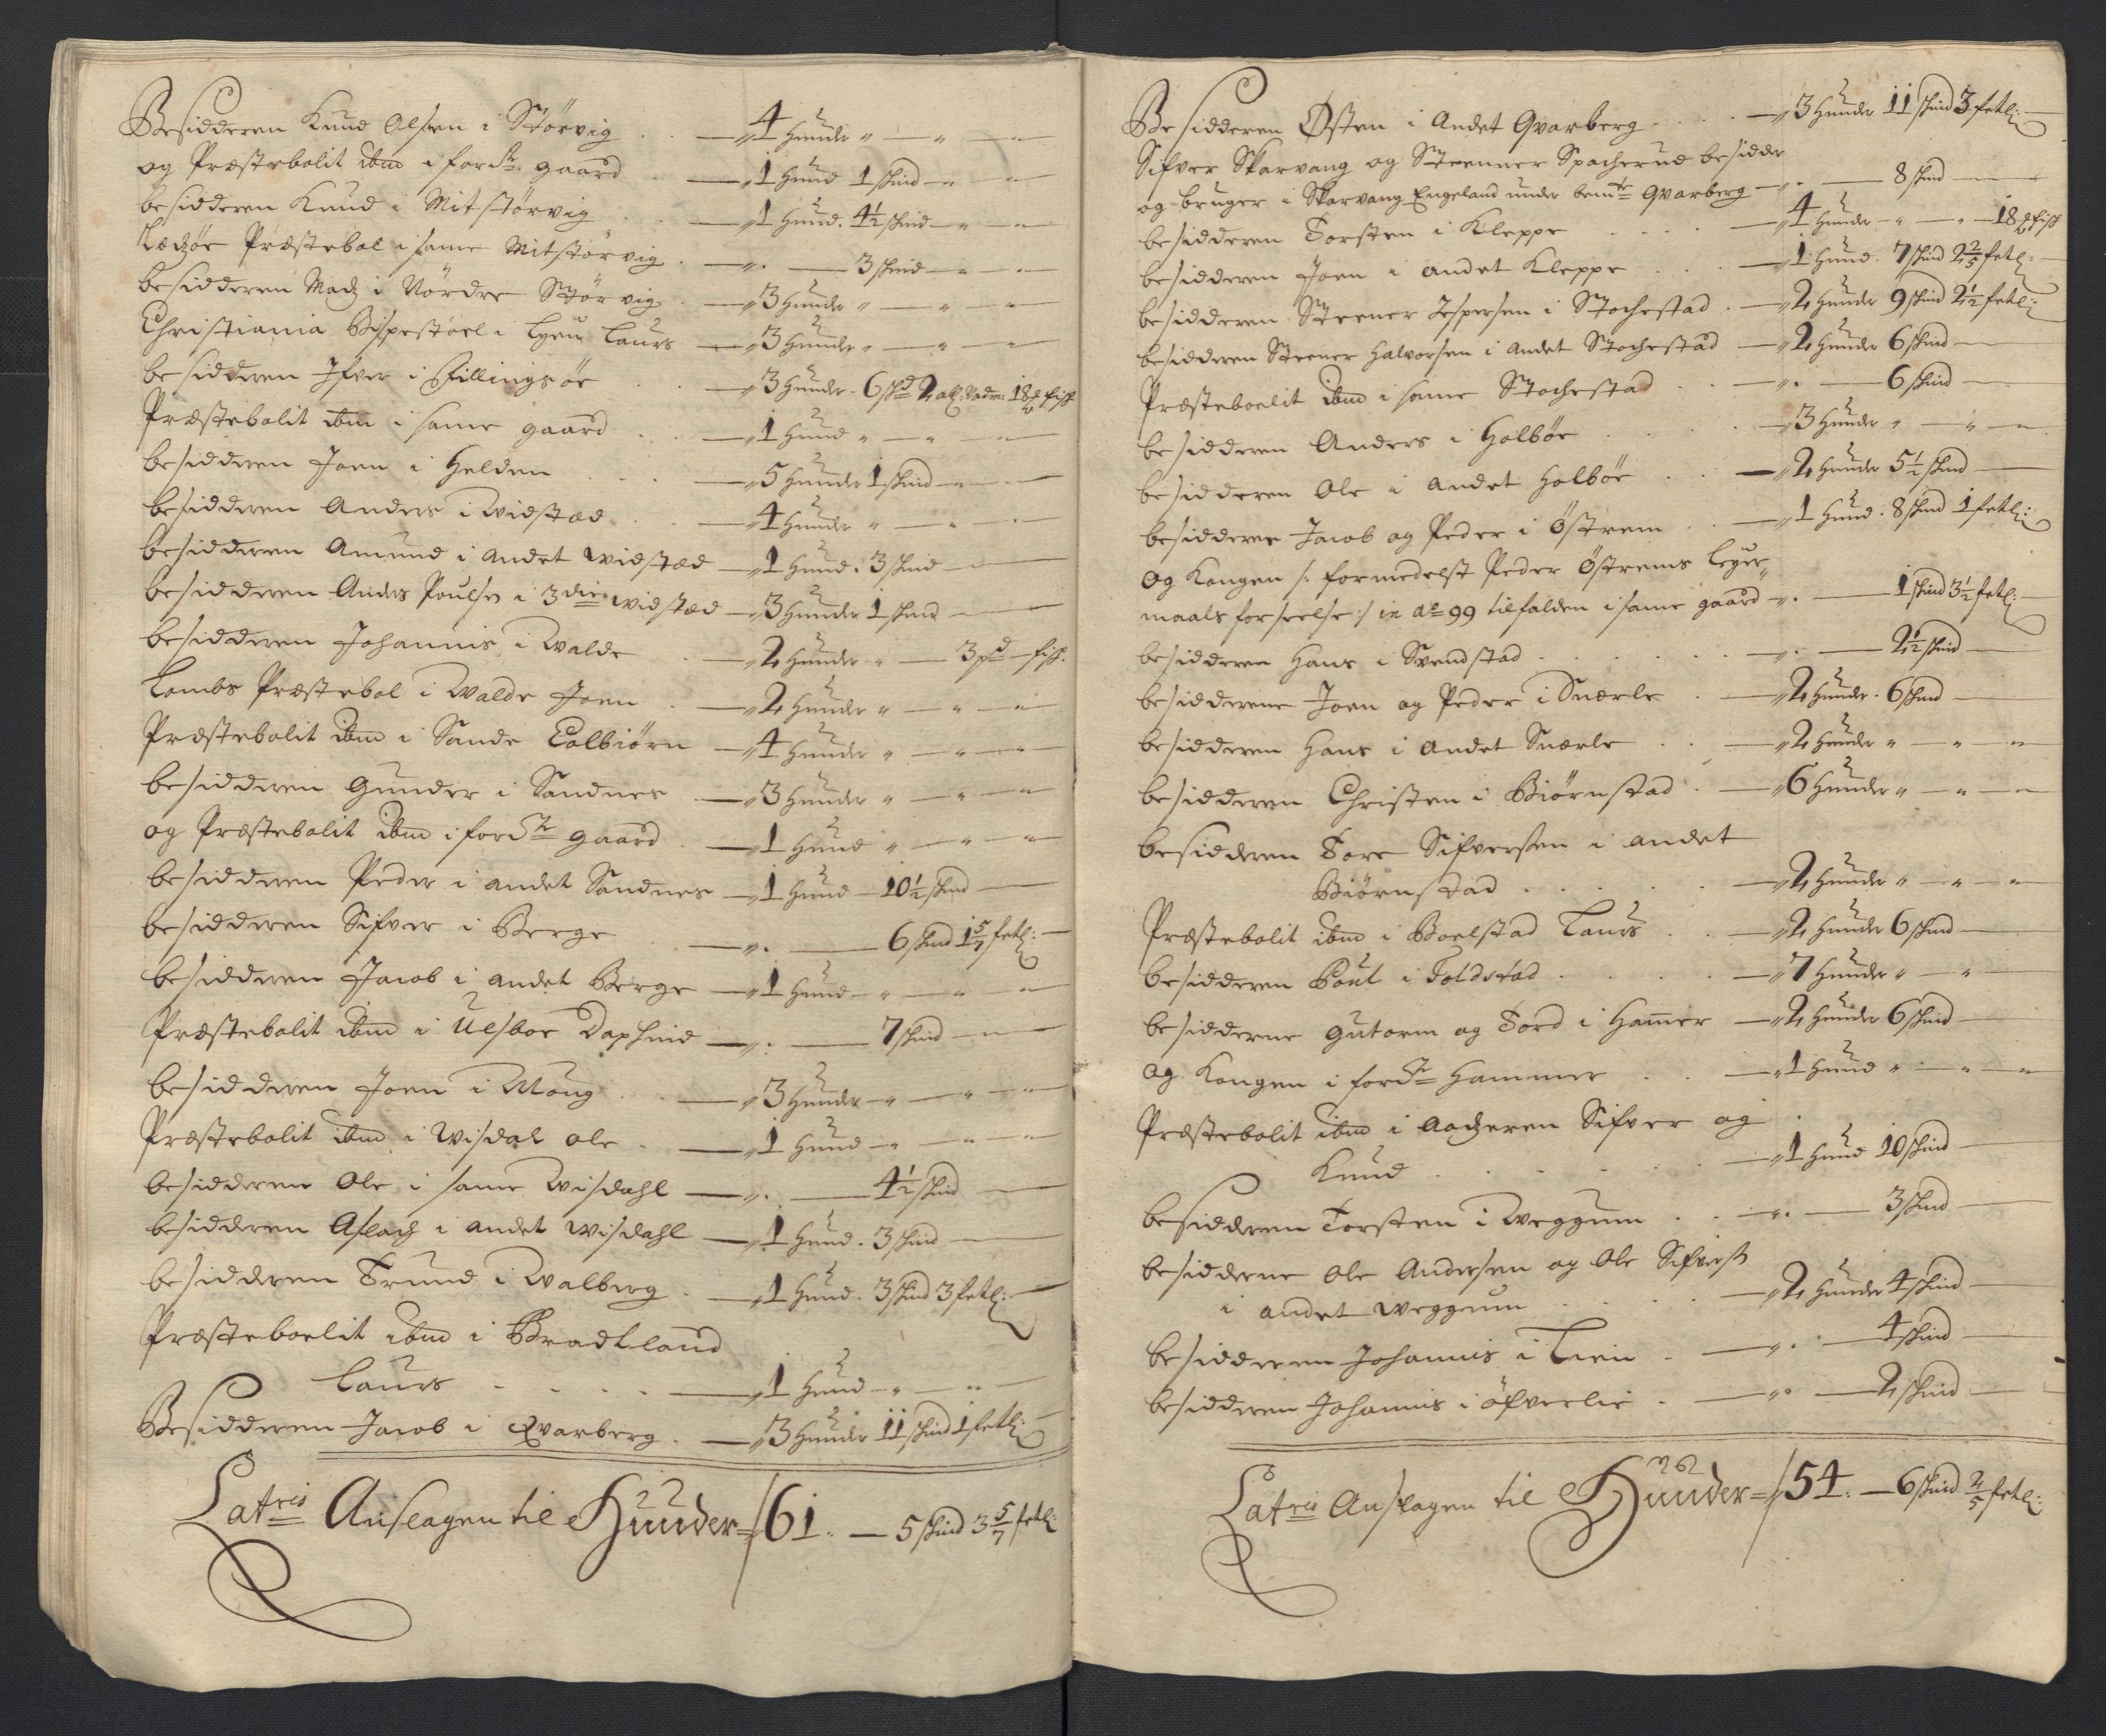 Besidderen Knud Olsen i Störvig . . — 4 Hunder " — " —
og Præstebolit ibm i fords gaard . — 1 Hund 1 skind — " —
besidderen Knud i Mitstörvig . . — 1 Hund. 4½ skind — " —
Lædzör Præstebol i same Mitstörvig . — ". — 3 skind — " —
besidderen Madz i Nördre Störvig . — 3 Hunder " — " —
Christiania Bispestoel i Lyen Laurs — 3 Hunder " — " —
besidderen Ifver i Fillingsöe . . — 3 Hunder - 6 skd 2 all: vadm: 18 ℔ fisk
Præstebolit ibm i same gaard . . — 1 Hund " — " —
besidderen Joen i Helden . . . — 5 Hunder 1 skind — " —
besidderen Anders i Widstæd . . — 4 Hunder " — " —
besidderen Amund i andet Widstæd — 1 Hund. 3 skind —
besidderen Anders Poulsen i 3die Widstæd — 3 Hunder 1 skind —
besidderen Johannis i Walde . — 2 Hunder " — 3 pd — fisk.
Lombs Præstebol i Walde Joen . — 2 Hunder " — " —
Præstebolit ibm i Sande Colbiörn — 4 Hunder " — " —
besidderen Gunder i Sandnes . — 3 Hunder " — " —
og Præstebolit ibm i fords gaard . — 1 Hund " — " —
besidderen Peder i andet Sandnes — 1 Hund — 10½ skind —
besidderen Sifver i Berge . — ". — 6 skind 1 5/7 fetl: —
besidderen Jacob i andet Berge — 1 Hund — " — " —
Præstebolit ibm i Ulsboe Daphind — ". — 7 skind — " —
besidderen Joen i Moug . . — 3 Hunder — " — " —
Præstebolit ibm i Wisdal Ole . — 1 Hund — " — " —
besidderen Ole i same Wisdahl — ". — 4½ skind —
besidderen Aslach i andet Wisdahl — 1 Hund. 3 skind —
besidderen Trund i Walberg . — 1 Hund. 3 skind 3 fetl: —
Præsteboelit ibm i Bradtland
Laurs . . . . — 1 Hund — " — " —
Besidderen Jacob i Qvarberg . — 3 Hunder 11 skind 1 fetl: —
Latris Anslagen til Hunder = 61. — 5 skind 3 5/7 fetl:
Besidderen Østen i Andet Qvarberg . . . — 3 Hunder 11 skind 3 fetl: —
Sifver Skarvang og Steenner Spacherud besidde
og bruger i Skarvang Engeland under bemte Qvarberg — ". — 8 skind —
besidderen Torsten i Kleppe . . . — 4 Hunder — " — " — 18 ℔ fisk
besidderen Joen i andet Kleppe . . — 1 Hund. 7 skind 2 2/5 fetl: —
besidderen Steener Jespersen i Stochestad . — 2 Hunder 9 skind 2½ fetl:
besidderen Steener Halvorsen i andet Stochestad — 2 Hunder 6 skind —
Præsteboelit ibm i same Stochestad . . — ". — 6 skind —
besidderen Anders i Holböe . . . — 3 Hunder " — " —
besidderen Ole i andet Holböe . . — 2 Hunder 5½ skind —
besidderne Jacob og Peder i Östrem . . — 1 Hund. 8 skind 1 fetl:
og Kongen /: formedelst Peder Östrems Leyer-
maals forseelse :/ in ao 99 tilfalden i same gaard — ". — 1 skind 3½ fetl: —
besidderen Hans i Svendstad . . . . . — ". — 2½ skind —
besidderene Joen og Peder i Snærle . — 2 Hunder. 6 skind —
besidderen Hans i andet Snærle . . — 2 Hunder " — " —
besidderen Christen i Biörnstad . — 6 Hunder " — " —
besidderen Tore Sifversen i andet
Biörnstad . . . . . — 2 Hunder " — " —
Præstebolit ibm i Boelstad Laurs . . — 2 Hunder 6 skind —
besidderen Poul i Toldstad . . . . — 7 Hunder " — " —
besidderne Gutorm og Tord i Hamer — 2 Hunder 6 skind —
og Kongen i fords Hammer . . — 1 Hund " — " —
Præstebolit ibm i Aadzeren Sifver og .
Knud . . . . . . — 1 Hund 10 skind —
besidderen Torsten i Weggum . . — ". — 3 skind —
besidderne Ole Andersen og Ole Sifvers:
i andet Weggum . . . . — 2 Hunder 4 skind —
besidderen Johannis i Lien . — ". — 4 skind —
besidderen Johannis i öfverlie . — ". — 2 skind —
Latris Anslagen til Hunder = 54. — 6 skind 2/5 fetl: